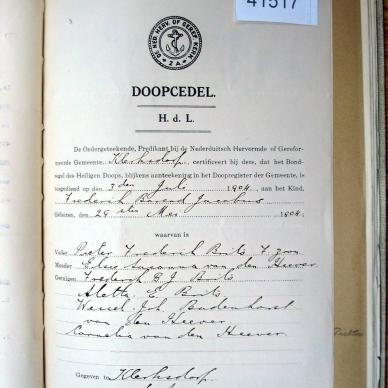 41517
DE NED. HERV. OF GEREF. KERK
Z A
DOOPCEDEL.
H. d. L.
De Ondergeteekende, Predikant bij de Nederduitsch Hervormde of Gerefor-
meerde Gemeente, Klerksdorp, certificeert bij deze, dat het Bond-
zegel des Heiligen Doops, blijkens aanteekening in het Doopregister der Gemeente, is
toegediend op den 3den Juli 1904, aan het Kind,
Frederik Barend Jacobus
Geboren, den 29sten Mei 1904.
waarvan is
Vader Pieter Frederik Brits
Moeder Elsie Susanna van den Heever
Getuigen Frederik B J Brits
Aletta E Brits
Wessel Joh. Badenhorst
van den Heever
Cornelia van den Heever
Gegeven te Klerksdorp